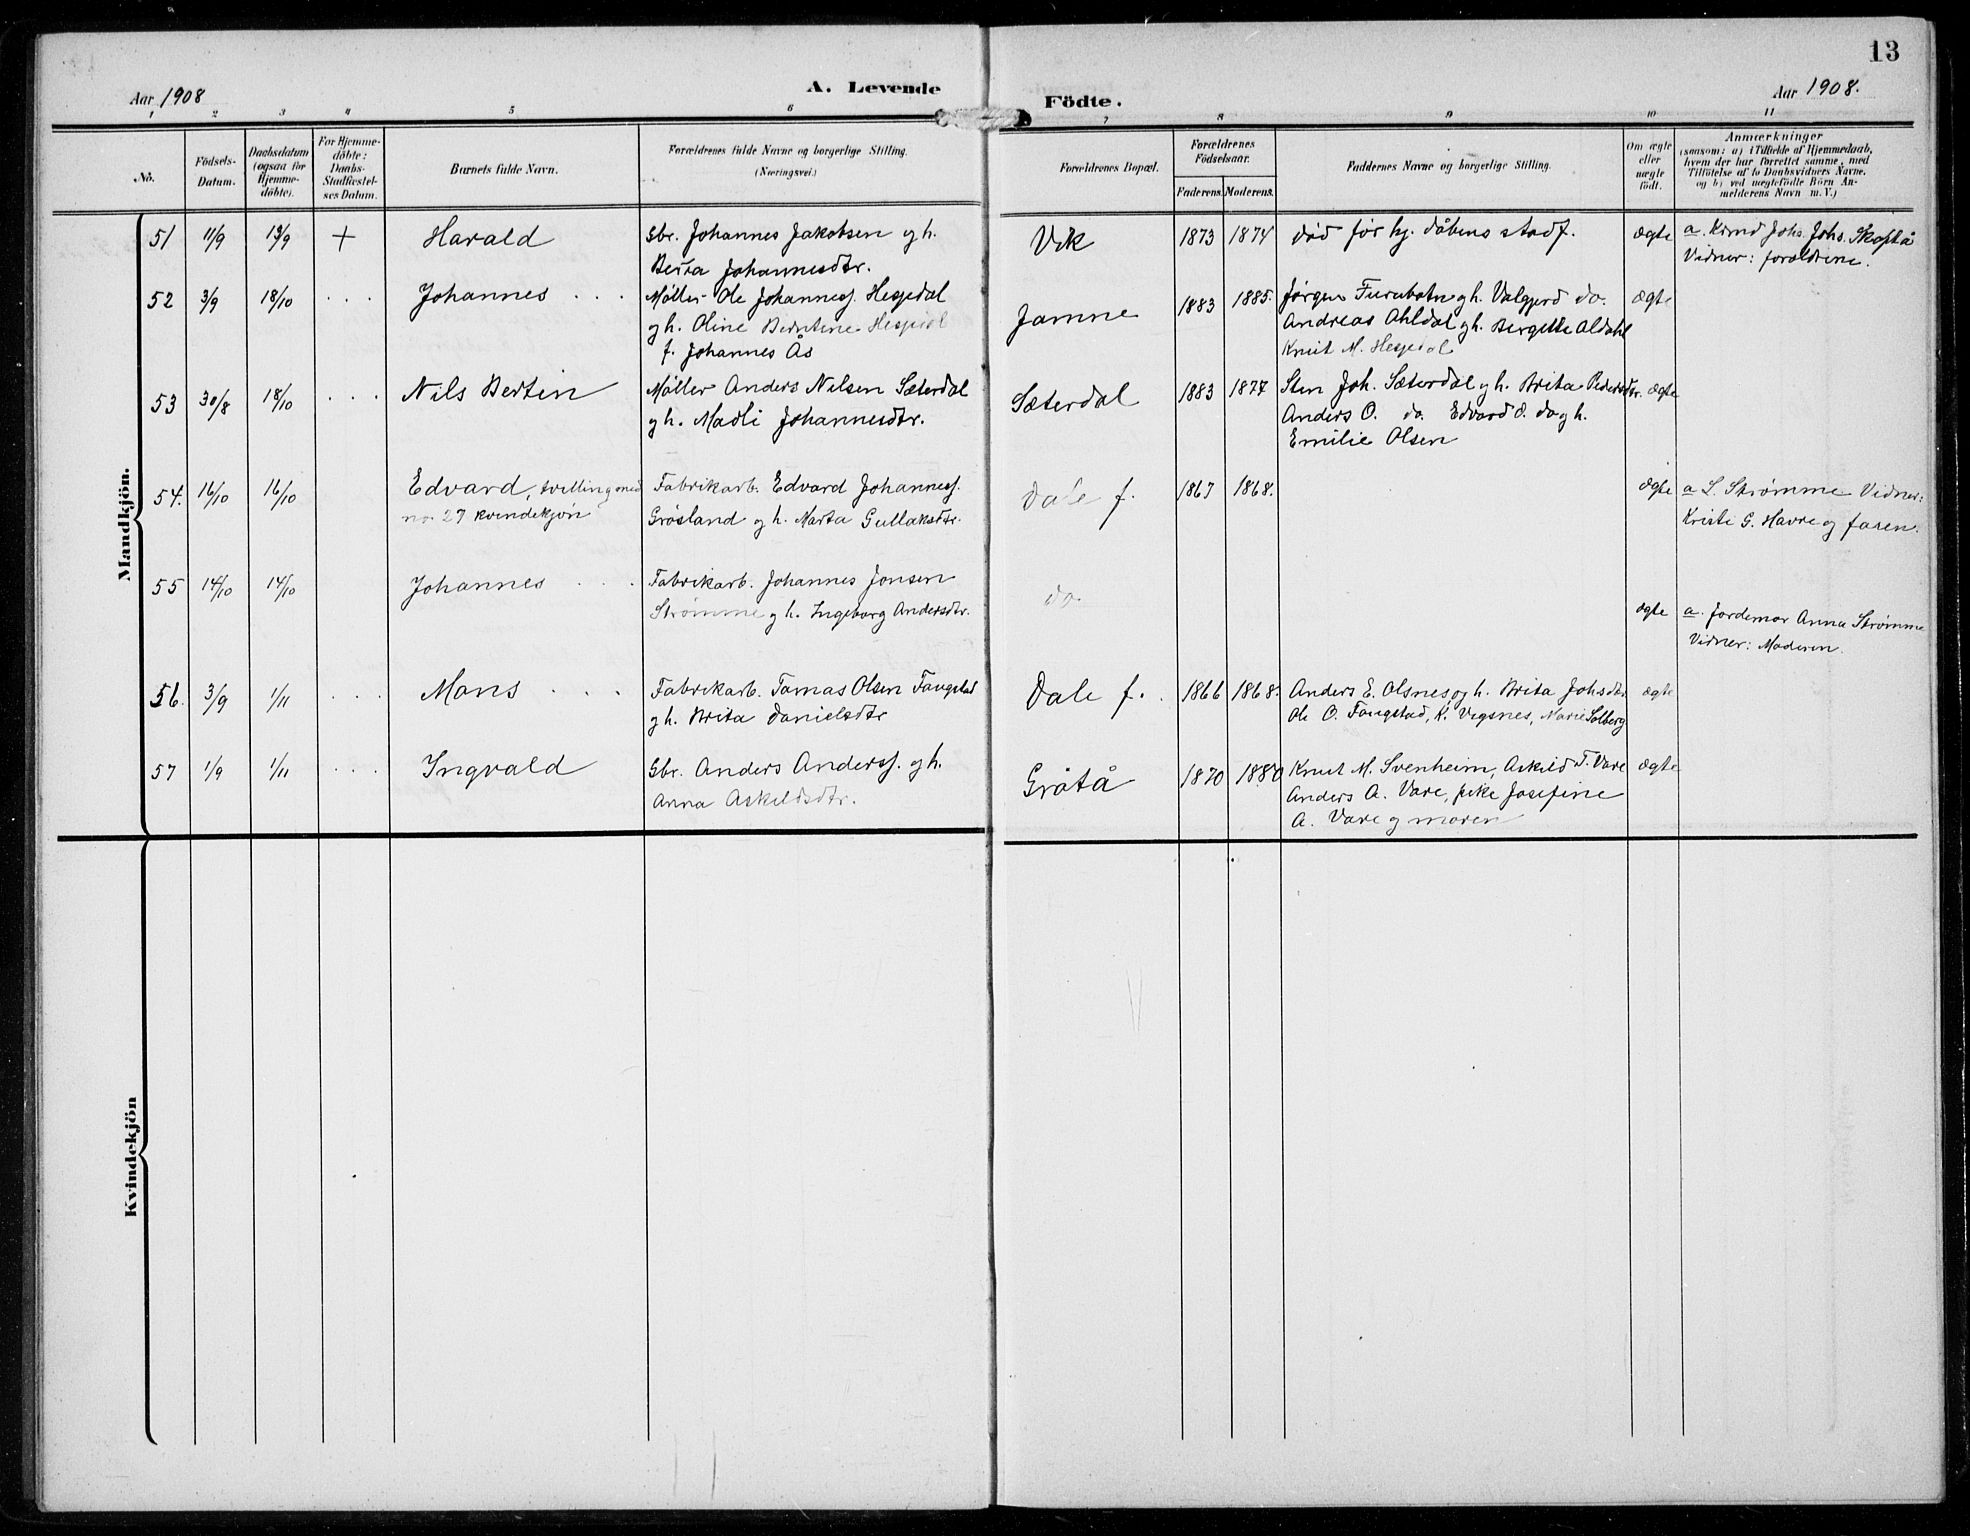 13
Aar 1908
A. Levende
Födte.
Aar 1908.
1 2 3 4 5 6 7 8 9 10 11
No.
Födsels-
Datum.
Daabsdatum
(ogsaa for
Hjemme-
döbte).
For Hjemme-
döbte:
Daabs-
Stadfæstel-
ses Datum.
Barnets fulde Navn.
Forældrenes fulde Navne og borgerlige Stilling.
(Næringsvei.)
Forældrenes Bopæl.
Forældrenes
Födselsaar.
Faderens. Moderens.
Faddernes Navne og borgerlige Stilling.
Om ægte
eller
uægte
födt.
Anmærkninger
(saasom: a) i Tilfælde af Hjemmedaab,
hvem der har forrettet samme, med
Tilföielse af to Daabsvidners Navne,
og b) ved uægtefödte Börn An-
melderens Navn m. V.)
Mandkjön.
51 11/9 13/9 + Harald Gbr. Johannes Jakobsen og h.
Johannesdtr.
Vik 1873 1874 død før hj. dåbens stadf. ægte a. Joh. Johs. Skaftå
Vidner: forældrene.
52 3/9 18/10 . . . Johannes . . . Møller Ole Johanness. Hesjedal
og h. Oline Berntine Hesjedal
f. Johannes Ås
Jamne 1883 1885. Jørgen Furubotn og h. Valgjerd do. ægte
Andreas Ahldal og h. Bergitte Aldahl
Knut M. Hesjedal
53 30/8 18/10 . . . Nils Bertin Møller Anders Nilsen Sæterdal
og h. Madli Johannesdtr.
Sæterdal 1883 1877 Sten Joh. Sæterdal og h. Brita Pedersdtr. ægte
Anders O. do. Edvard O. do og h.
Emilie Olsen
54. 16/10 16/10 Edvard, tvilling med
no. 27 kvindekjøn
Fabrikarb. Edvard Johanness.
Grøsland og h. Marta Gullaksdtr.
Dale f. 1867 1868. ægte a L. Strømme Vidner:
Kristi G. Havre og faren.
55 14/10 14/10 Johannes . . . Fabrikarb. Johannes Jonsen
Strømme og h. Ingeborg Andersdtr.
do ægte a. Jordemor Anna Strømme
Vidner: Moderen.
56. 3/9 1/11 . . . Mons . . . Fabrikarb. Tomas Olsen Fangstad
og h. Brita Danielsdtr
Dale f. 1866 1868. Anders E. Olsnes og h. Brita Johsdtr ægte
Ole O. Fangstad, K. Vegsnes, Marie Solberg
57 1/9 1/11 . . . Ingvald Gbr. Anders Anderss. og h.
Anna Askildsdtr.
Gråtå 1870 1880 Knut M. Svenheim, Askild T. Vare ægte
Anders A. Vare, pike Josefine
A. Vare og moren
Kvindekjön